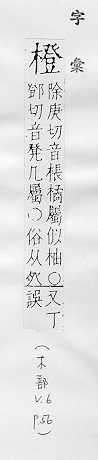 字彙
橙
除庚切音棖橘屬似柚〇又丁
鄧切音凳几屬〇俗从癶誤
(木部
V.6
P.56)